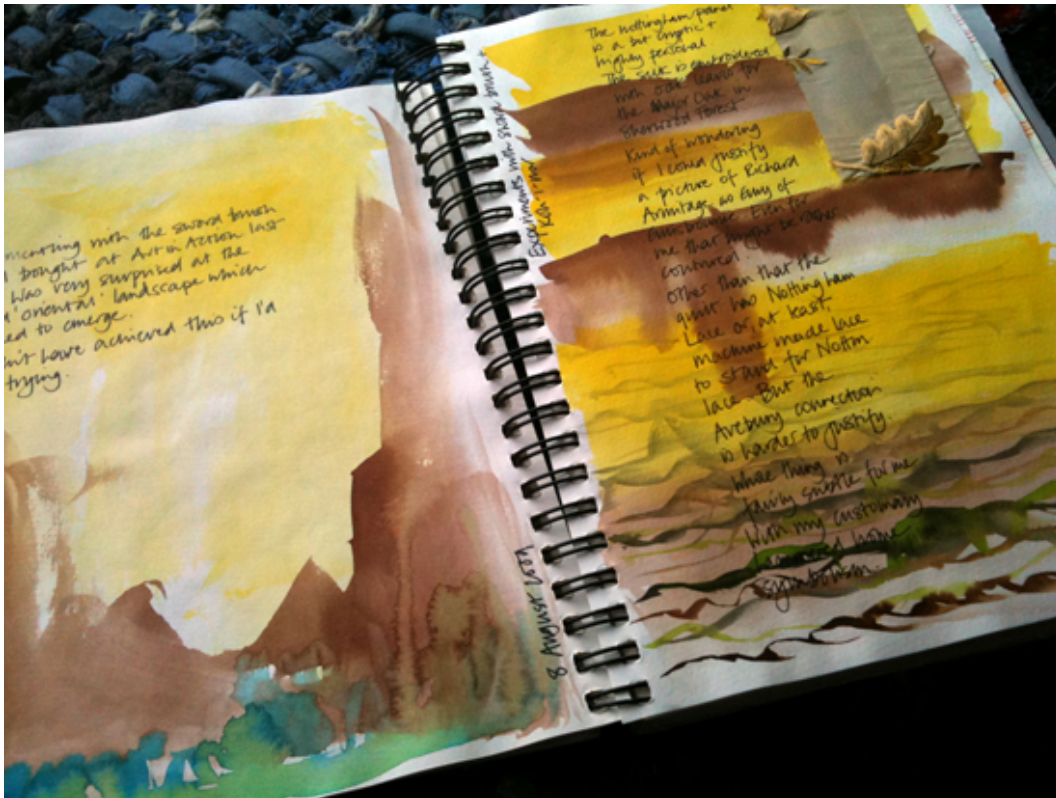 menting with the sword brush
I bought at Art in Action last
was very surprised at the
'oriental' landscape which
ed to emerge.
n't have achieved this if I'd
trying.
8 August 2009
Experiments with sword brush +
The Nottingham panel
is a bit cryptic +
highly personal
The silk is embroidered
with oak leaves for
the Major Oak in
Sherwood Forest
Kind of wondering
if I could justify
a picture of Richard
Armitage as Guy of
Guisborne. Even for
me that might be rather
contrived.
Other than that the
quilt has Nottingham
Lace or, at least,
machine made lace
to stand for Nottm
lace. But the
Avebury connection
is harder to justify.
Whole thing is
fairly subtle for me
with my customary
home
symbolism.